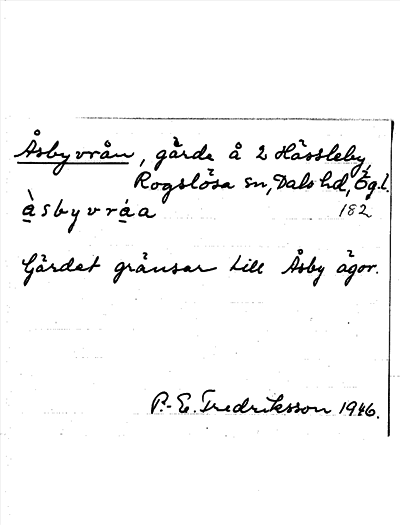 Åsbyvrån, gärde å 2 Hässleby,
Rogslösa sn, Dals hd, Ög.l.
à̱sbyvrá̱a 182
Gärdet gränsar till Åsby ägor.
P.-E. Fredriksson 1946.